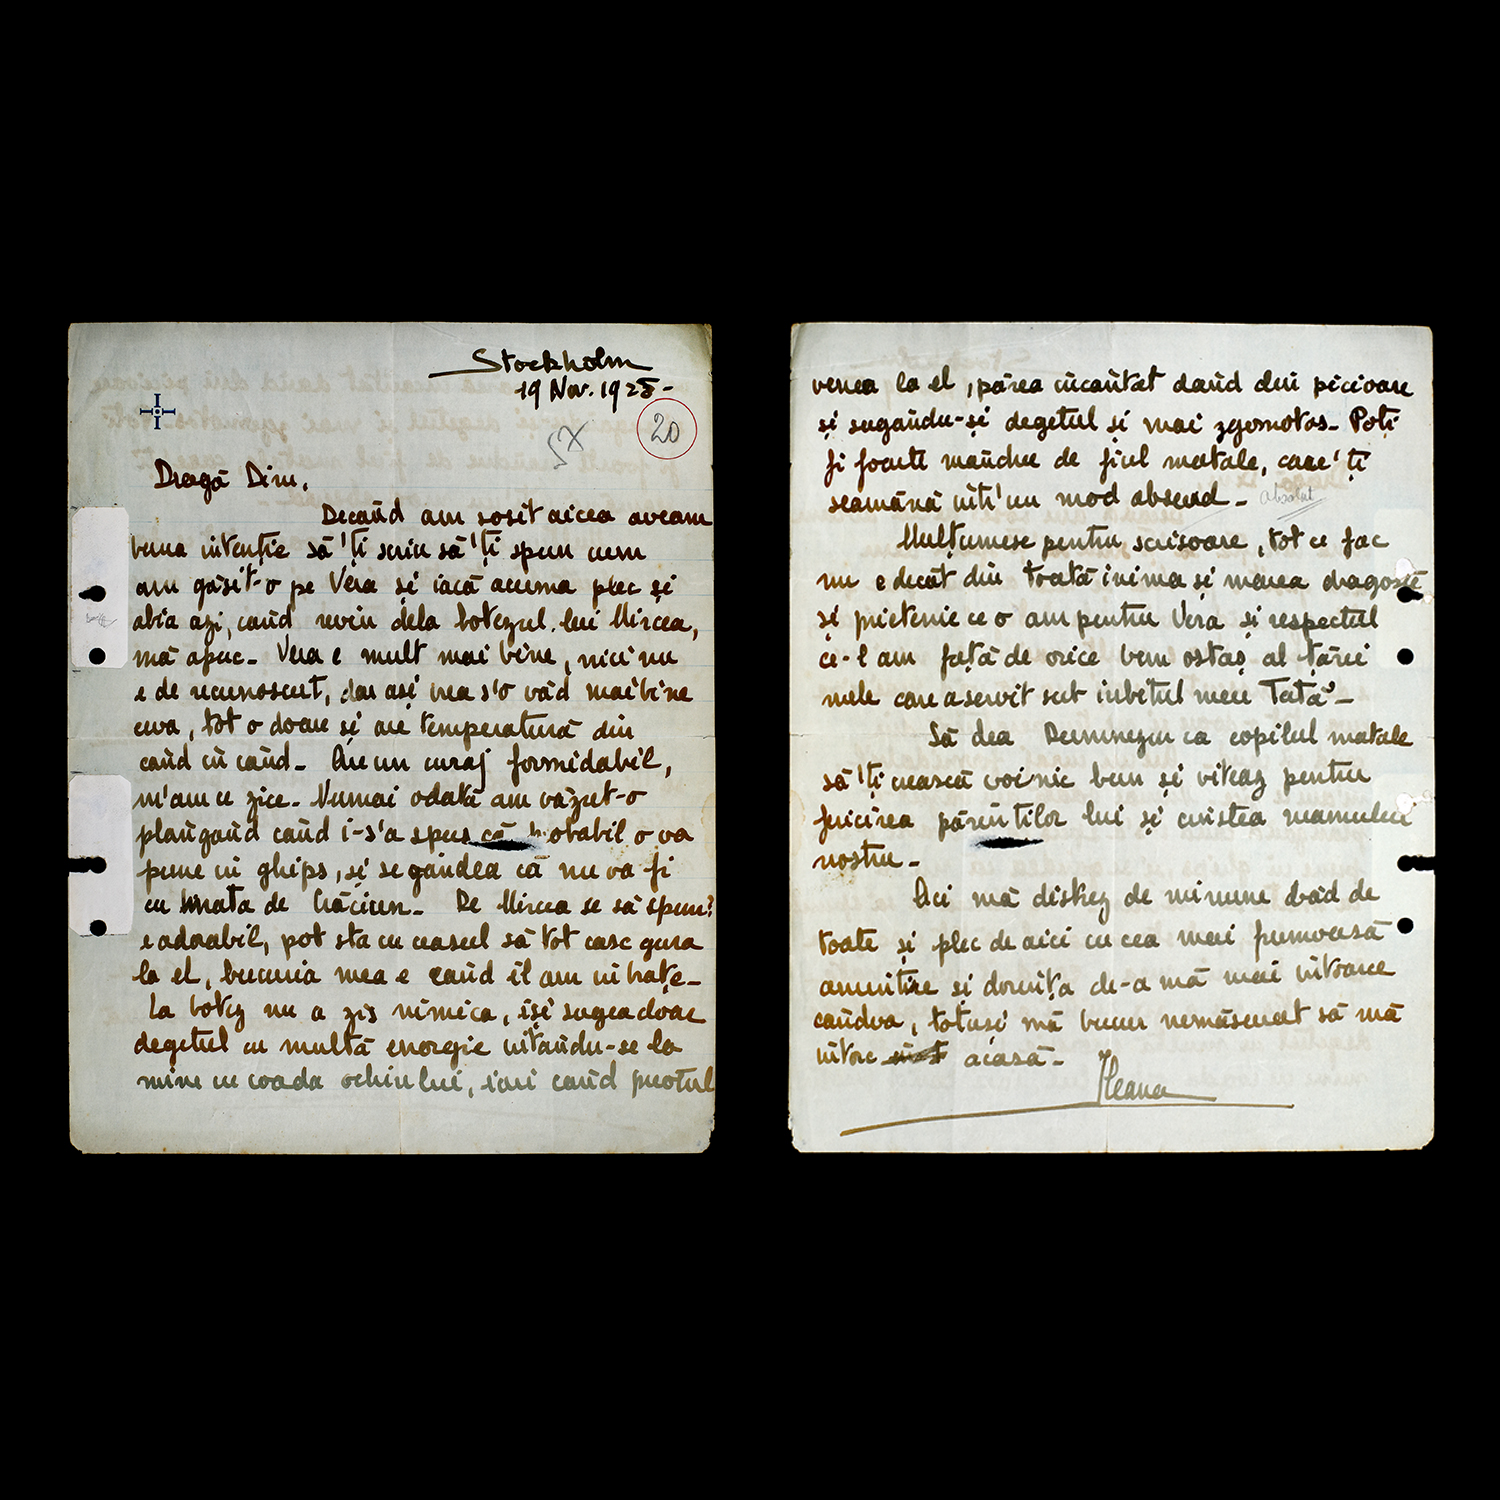 Stockholm
19 Nov. 1928 -
5X
20
Dragă Dim,
Decând am sosit aicea aveam
buna intenție să'ți scriu să'ți spun cum
am găsit-o pe Vera și iacă acuma plec și
abia azi, când reviu dela botezul lui Mircea,
mă apuc - Vera e mult mai bine, nici nu
e de recunoscut, dar ași vrea s'o văd mai bine
ceva, tot o doare și are temperatură din
când în când - Are un curaj formidabil,
n'am ce zice - Numai odată am văzut-o
plângând când i-s'a spus că probabil o va
pune in ghips, și se gândea că nu va fi
cu de Crăciun - De Mircea ce să spun?
e adorabil, pot sta cu ceasul să tot casc gura
la el, bucuria mea e când îl am in brațe -
La botez nu a zis nimica, iși sugea doar
degetul cu multă energie uitându-se la
mine cu coada ochiului, iar când preotul
venea la el, părea incântat dând din picioare
și sugându-și degetul și mai zgomotos - Poți
fi foarte mândru de fiul matale, care'ți
seamănă intr'un mod absurd -
absolut
Mulțumesc pentru scrisoare, tot ce fac
nu e decât din toată inima și marea dragoste
și prietenie ce o am pentru Vera și respectul
ce-l am față de orice bun ostaș al țării
mele care a servit sub iubitul meu Tată -
Să dea Dumnezeu ca copilul matale
să'ți crească voinic bun și viteaz pentru
fericirea părinților lui și cinstea neamului
nostru -
Aci mă distrez de minune dră de
toate și plec de aici cu cea mai frumoasă
amintire și dorința de-a mă mai intoarce
cândva, totuși mă bucur nemăsurat să mă
intorc acasă -
Ileana